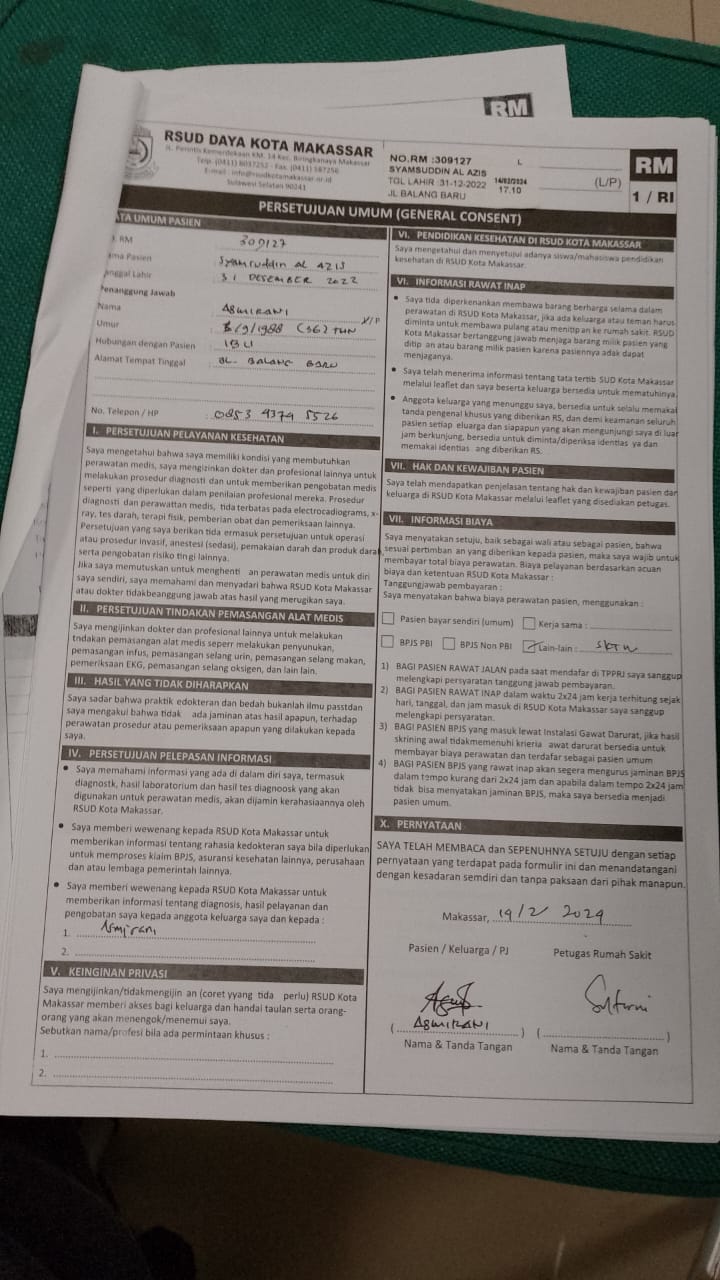 RM
RSUD DAYA KOTA MAKASSAR
Jl. Perintis Kemerdekaan KM. 14 Kec. Biringkanaya Makassar
Telp. (0411)
Sulawesi Selatan 90241
NO.RM :309127 L
SYAMSUDDIN AL AZIS
TGL LAHIR :31-12-2022 14/02/2024
JL BALANG BARU 17.10
(L/P)
RM
1 / RI
PERSETUJUAN UMUM (GENERAL CONSENT)
ATA UMUM PASIEN
. RM 309127
ma Pasien : Syamsuddin AL AZIS
anggal Lahir : 31 DESEMBER 2022
Penanggung Jawab
Nama : ASMIRANI
Umur : /9/1988 (36) THN L/P
Hubungan dengan Pasien : IBU
Alamat Tempat Tinggal : JL. BALANG BARU
No. Telepon / HP : 0853 4374 5526
I. PERSETUJUAN PELAYANAN KESEHATAN
Saya mengetahui bahwa saya memiliki kondisi yang membutuhkan
perawatan medis, saya mengizinkan dokter dan profesional lainnya untuk
melakukan prosedur diagnosti dan untuk memberikan pengobatan medis
seperti yang diperlukan dalam penilaian profesional mereka. Prosedur
diagnosti dan perawattan medis, tida terbatas pada electrocadiograms, x-
ray, tes darah, terapi fisik, pemberian obat dan pemeriksaan lainnya.
Persetujuan yang saya berikan tida ermasuk persetujuan untuk operasi
atau prosedur invasif, anestesi (sedasi), pemakaian darah dan produk darah
serta pengobatan risiko tingi lainnya.
Jika saya memutuskan untuk menghenti an perawatan medis untuk diri
saya sendiri, saya memahami dan menyadari bahwa RSUD Kota Makassar
atau dokter tidakbeanggung jawab atas hasil yang merugikan saya.
II. PERSETUJUAN TINDAKAN PEMASANGAN ALAT MEDIS
Saya mengijinkan dokter dan profesional lainnya untuk melakukan
tndakan pemasangan alat medis seperr melakukan penyunukan,
pemasangan infus, pemasangan selang urin, pemasangan selang makan,
pemeriksaan EKG, pemasangan selang oksigen, dan lain lain.
III. HASIL YANG TIDAK DIHARAPKAN
Saya sadar bahwa praktik edokteran dan bedah bukanlah ilmu passtdan
saya mengakui bahwa tidak ada jaminan atas hasil apapun, terhadap
perawatan prosedur atau pemeriksaan apapun yang dilakukan kepada
saya.
IV. PERSETUJUAN PELEPASAN INFORMASI
• Saya memahami informasi yang ada di dalam diri saya, termasuk
diagnostk, hasil laboratorium dan hasil tes diagnoosk yang akan
digunakan untuk perawatan medis, akan dijamin kerahasiaannya oleh
RSUD Kota Makassar.
• Saya memberi wewenang kepada RSUD Kota Makassar untuk
memberikan informasi tentang rahasia kedokteran saya bila diperlukan
untuk memproses klaim BPJS, asuransi kesehatan lainnya, perusahaan
dan atau lembaga pemerintah lainnya.
• Saya memberi wewenang kepada RSUD Kota Makassar untuk
memberikan informasi tentang diagnosis, hasil pelayanan dan
pengobatan saya kepada anggota keluarga saya dan kepada :
1. Asmirani
2.
V. KEINGINAN PRIVASI
Saya mengijinkan/tidakmengijin an (coret yyang tida perlu) RSUD Kota
Makassar memberi akses bagi keluarga dan handai taulan serta orang-
orang yang akan menengok/menemui saya.
Sebutkan nama/profesi bila ada permintaan khusus :
1.
2.
VI. PENDIDIKAN KESEHATAN DI RSUD KOTA MAKASSAR
Saya mengetahui dan menyetujui adanya siswa/mahasiswa pendidikan
kesehatan di RSUD Kota Makassar.
VI. INFORMASI RAWAT INAP
• Saya tida diperkenankan membawa barang berharga selama dalam
perawatan di RSUD Kota Makassar, jika ada keluarga atau teman harus
diminta untuk membawa pulang atau menitip an ke rumah sakit. RSUD
Kota Makassar bertanggung jawab menjaga barang milik pasien yang
ditip an atau barang milik pasien karena pasiennya adak dapat
menjaganya.
• Saya telah menerima informasi tentang tata tertib SUD Kota Makassar
melalui leaflet dan saya beserta keluarga bersedia untuk mematuhinya.
• Anggota keluarga yang menunggu saya, bersedia untuk selalu memakai
tanda pengenal khusus yang diberikan RS, dan demi keamanan seluruh
pasien setiap eluarga dan siapapun yang akan mengunjungi saya di luar
jam berkunjung, bersedia untuk diminta/diperiksa identias ya dan
memakai identias ang diberikan RS.
VII. HAK DAN KEWAJIBAN PASIEN
Saya telah mendapatkan penjelasan tentang hak dan kewajiban pasien dan
keluarga di RSUD Kota Makassar melalui leaflet yang disediakan petugas.
VII. INFORMASI BIAYA
Saya menyatakan setuju, baik sebagai wali atau sebagai pasien, bahwa
sesuai pertimban an yang diberikan kepada pasien, maka saya wajib untuk
membayar total biaya perawatan. Biaya pelayanan berdasarkan acuan
biaya dan ketentuan RSUD Kota Makassar :
Tanggungjawab pembayaran :
Saya menyatakan bahwa biaya perawatan pasien, menggunakan :
Pasien bayar sendiri (umum) Kerja sama :
BPJS PBI BPJS Non PBI Lain-lain : SKTM
1) BAGI PASIEN RAWAT JALAN pada saat mendafar di TPPRJ saya sanggup
melengkapi persyaratan tanggung jawab pembayaran.
2) BAGI PASIEN RAWAT INAP dalam waktu 2x24 jam kerja terhitung sejak
hari, tanggal, dan jam masuk di RSUD Kota Makassar saya sanggup
melengkapi persyaratan.
3) BAGI PASIEN BPJS yang masuk lewat Instalasi Gawat Darurat, jika hasil
skrining awal tidakmemenuhi krieria awat darurat bersedia untuk
membayar biaya perawatan dan terdafar sebagai pasien umum
4) BAGI PASIEN BPJS yang rawat inap akan segera mengurus jaminan BPJS
dalam tempo kurang dari 2x24 jam dan apabila dalam tempo 2x24 jam
tidak bisa menyatakan jaminan BPJS, maka saya bersedia menjadi
pasien umum.
X. PERNYATAAN
SAYA TELAH MEMBACA dan SEPENUHNYA SETUJU dengan setiap
pernyataan yang terdapat pada formulir ini dan menandatangani
dengan kesadaran semdiri dan tanpa paksaan dari pihak manapun.
Makassar, 19/2 2024
Pasien / Keluarga / PJ Petugas Rumah Sakit
( ASMIRANI ) ( )
Nama & Tanda Tangan Nama & Tanda Tangan